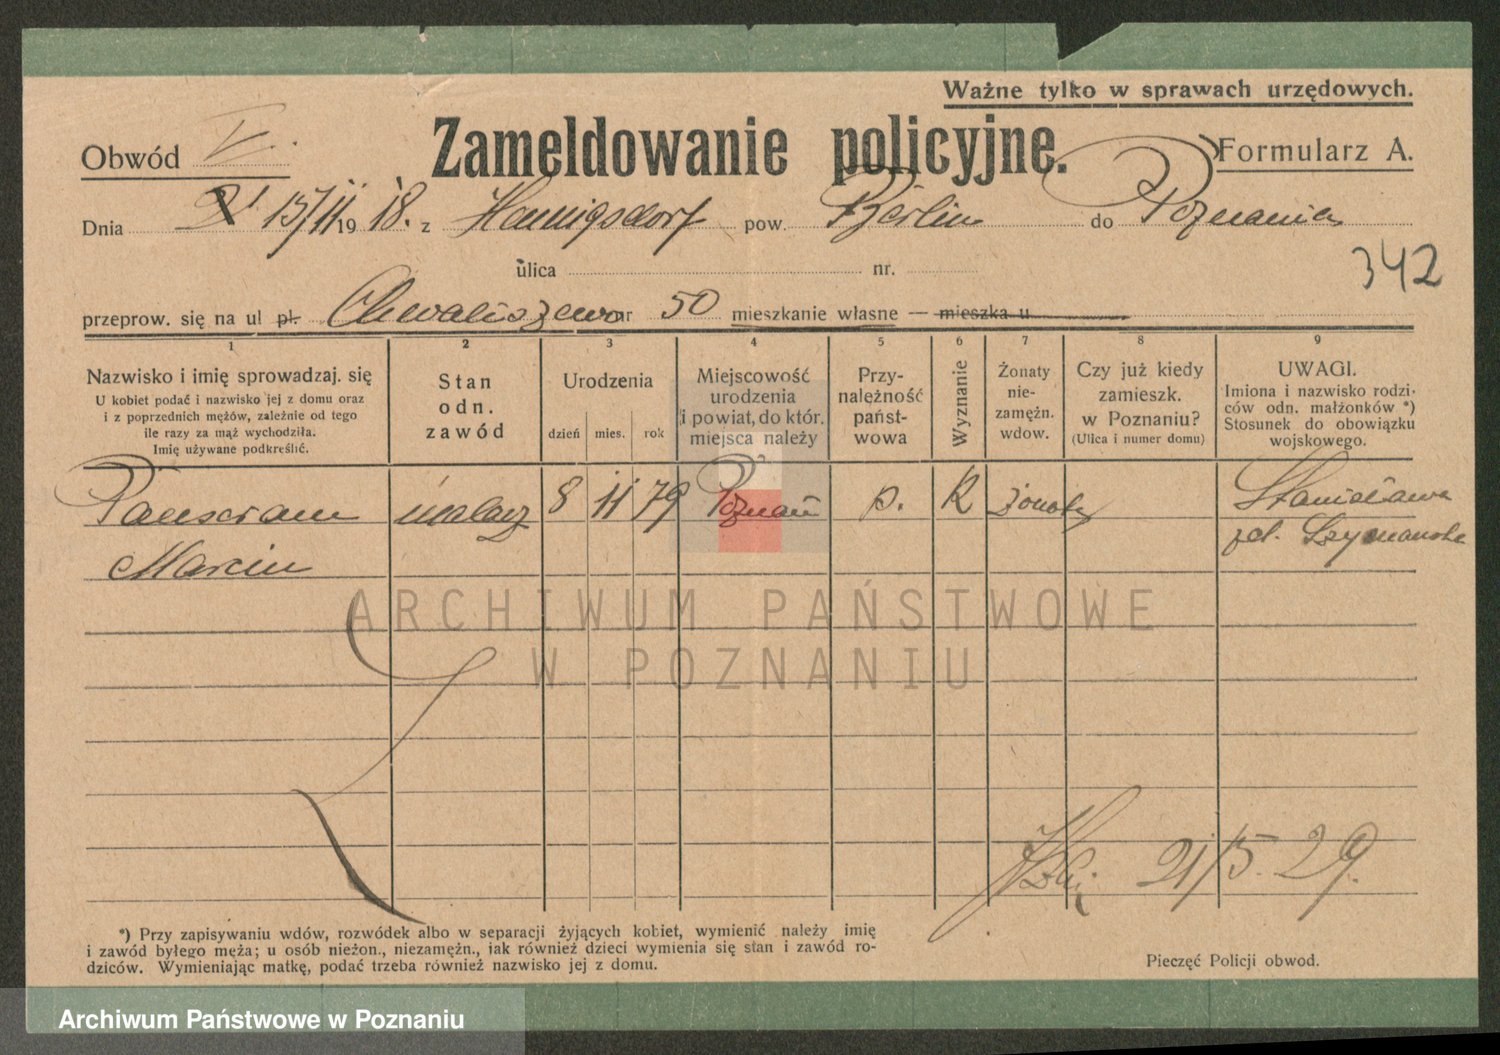 Ważne tylko w sprawach urzędowych.
Obwód V. Zameldowanie policyjne. Formularz A.
Dnia 15/11 1918. z Hennigsdorf pow. Berlin do Poznania
ulica nr. 342
przeprow. się na ul pl. Chwaliszewo nr 50 mieszkanie własne — mieszka u
1 2 3 4 5 6 7 8 9
Nazwisko i imię sprowadzaj. się
U kobiet podać i nazwisko jej z domu oraz
i z poprzednich mężów, zależnie od tego
ile razy za mąż wychodziła.
Imię używane podkreślić.
Stan
odn.
zawód
Urodzenia
dzień mies. rok
Miejscowość
urodzenia
i powiat, do któr.
miejsca należy
Przy-
należność
państ-
wowa
Wyznanie
Żonaty
nie-
zamężn.
wdow.
Czy już kiedy
zamieszk.
w Poznaniu?
(Ulica i numer domu)
UWAGI.
Imiona i nazwisko rodzi-
ców odn. małżonków *)
Stosunek do obowiązku
wojskowego.
malarz 8 11 79 Poznań p. k żonaty Stanisława
Marcin zd. Szymańska
ARCHIWUM PAŃSTWOWE
W POZNANIU
21/5. 29.
*) Przy zapisywaniu wdów, rozwódek albo w separacji żyjących kobiet, wymienić należy imię
i zawód byłego męża; u osób nieżon., niezamężn., jak również dzieci wymienia się stan i zawód ro-
dziców. Wymieniając matkę, podać trzeba również nazwisko jej z domu.
Pieczęć Policji obwod.
Archiwum Państwowe w Poznaniu